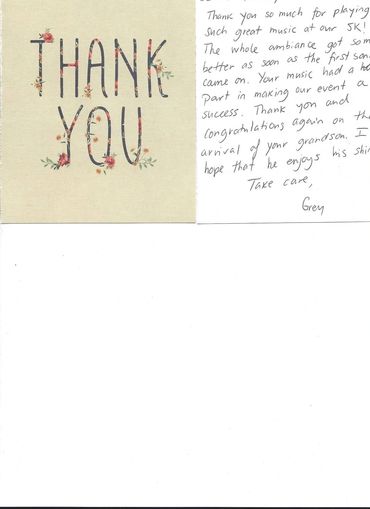 THANK
YOU
Thank you so much for playing
such great music at our 5K!
The whole ambiance got som
better as soon as the first son
came on. Your music had a
part in making our event a
success. Thank you and
congratulations again on th
arrival of your grandson. I
hope that he enjoys his shi
Take care,
Grey